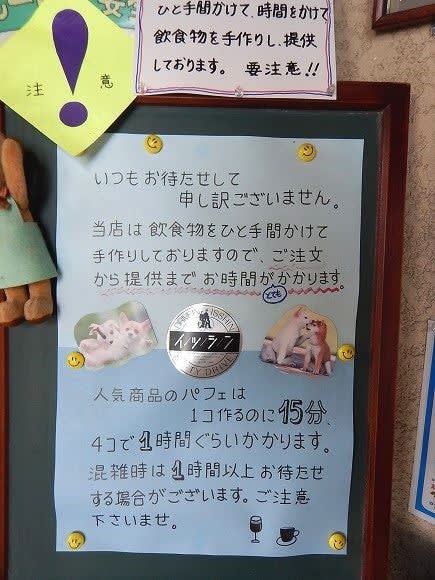 ひと手間かけて、時間をかけて
飲食物を手作りし、提供
しております。 要注意!!
注 ! 意
いつもお待たせして
申し訳ございません。
当店は飲食物をひと手間かけて
手作りしておりますので、ご注文
から提供までお時間がかかります。
とても
イッシン
人気商品のパフェは
1コ作るのに15分、
4コで1時間ぐらいかかります。
混雑時は1時間以上お待たせ
する場合がございます。ご注意
下さいませ。